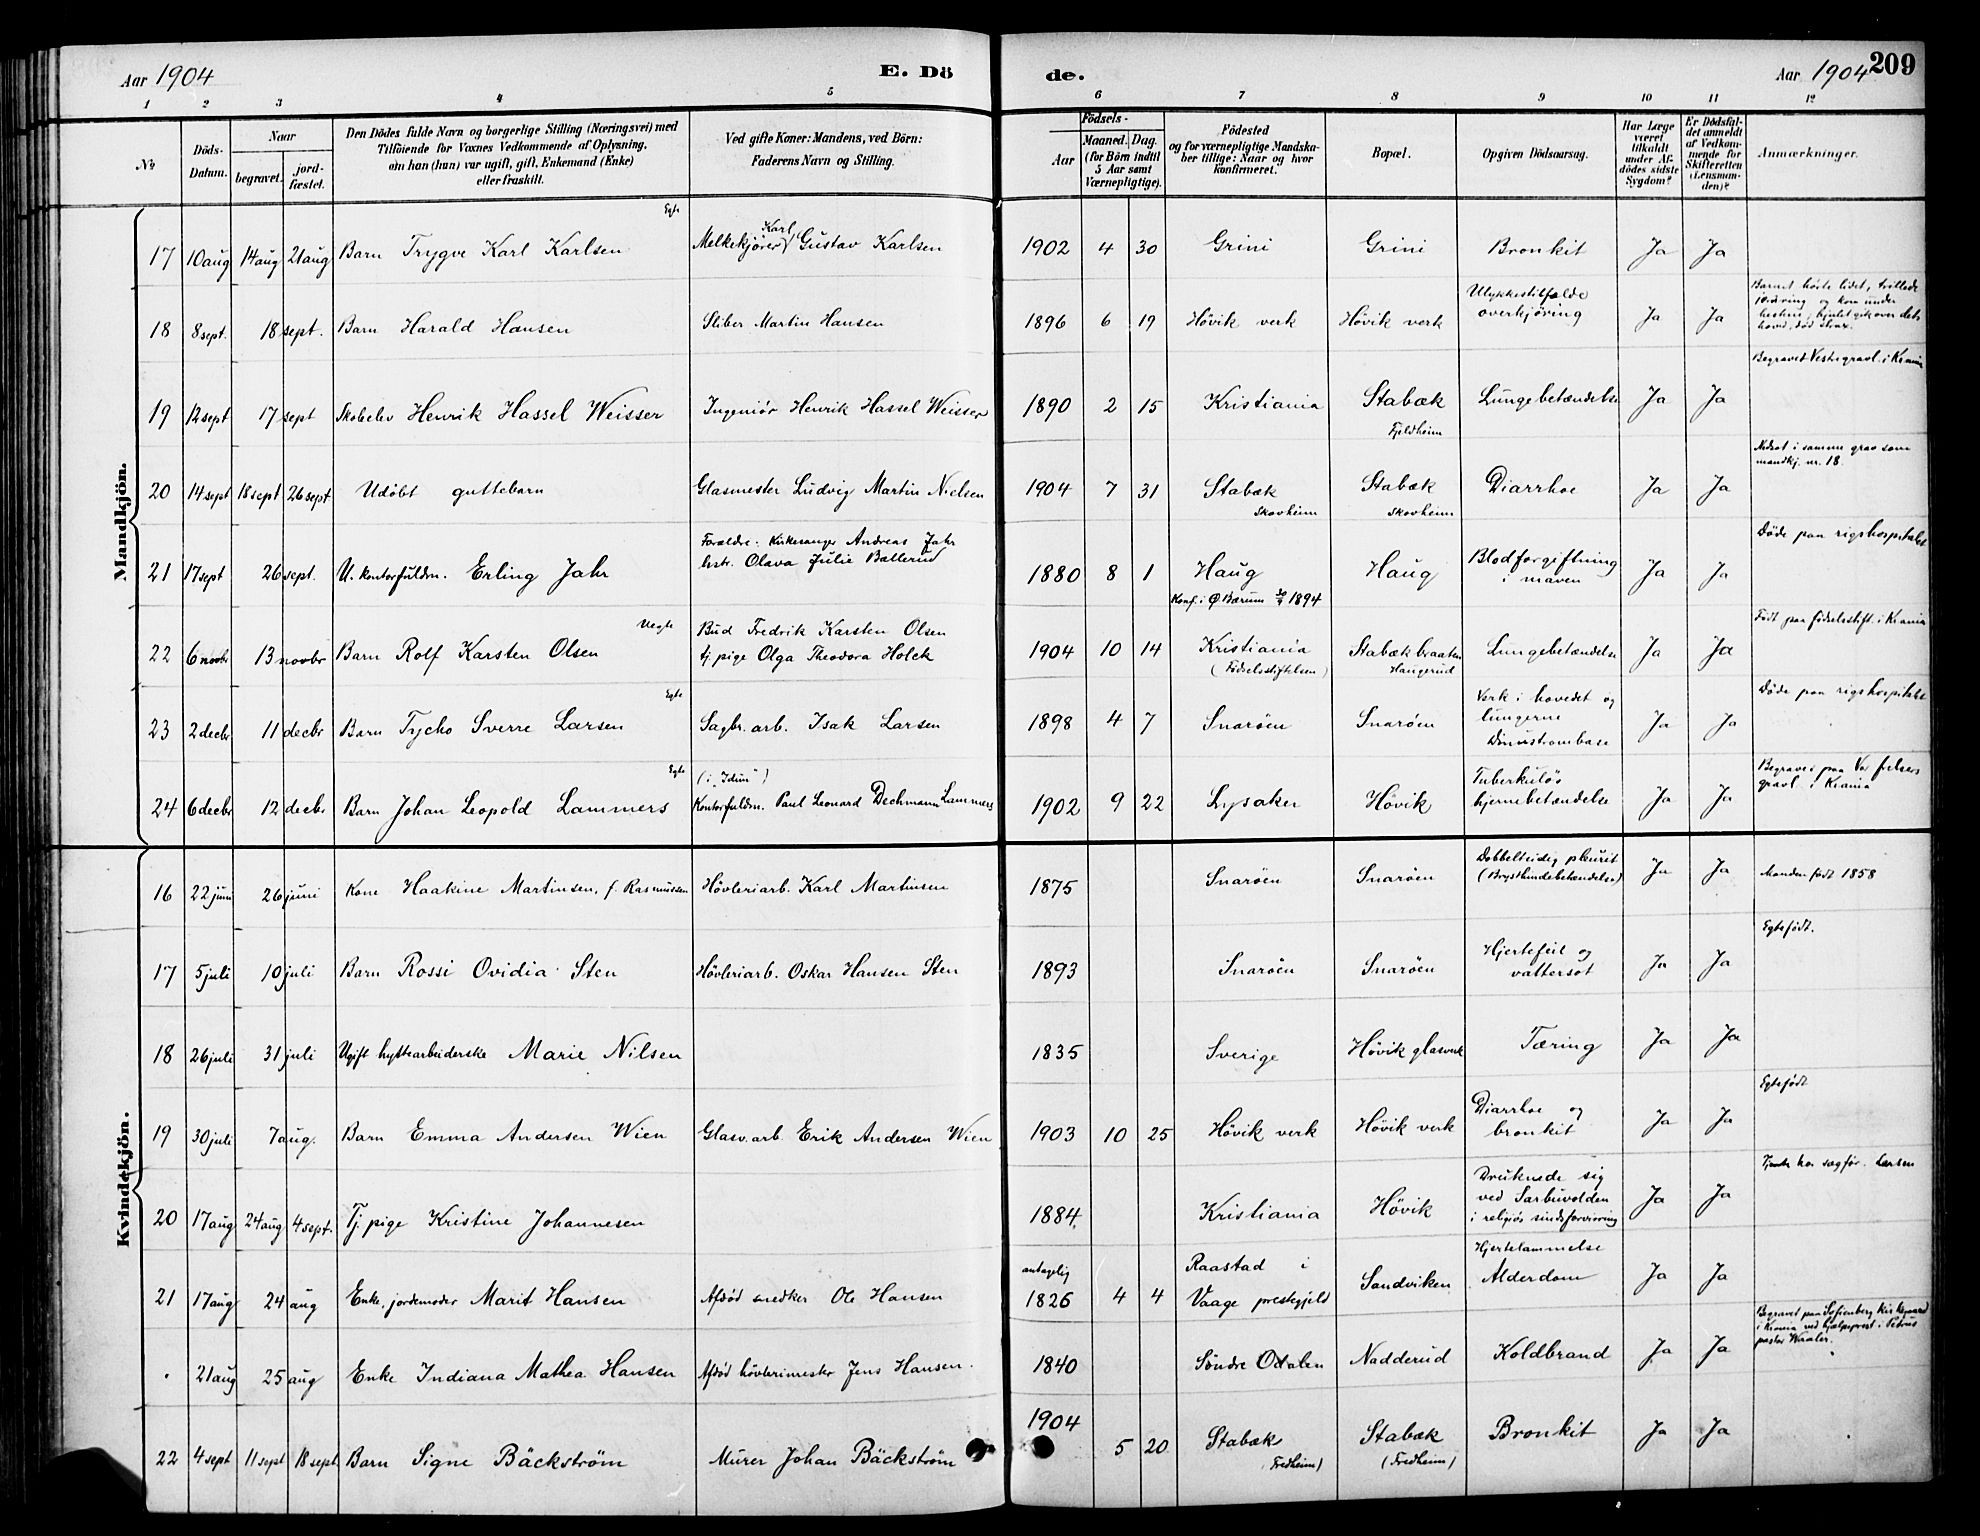 Aar 1904
E. Dö
de.
Aar 1904
209
1 2 3 4 5 6 7 8 9 10 11 12
No
Döds-
Datum.
Naar
begravet.
jord-
fæstet.
Den Dödes fulde Navn og borgerlige Stilling (Næringsvei) med
Tilföiende for Voxnes Vedkommende af Oplysning,
om han (hun) var ugift, gift, Enkemand (Enke)
eller fraskilt.
Ved gifte Koner: Mandens, ved Börn:
Faderens Navn og Stilling.
Födsels-
Aar
Maaned. Dag.
(for Börn indtil
5 Aar samt
Værnepligtige).
Födested
og for værnepligtige Mandska-
ber tillige: Naar og hvor
konfirmeret.
Bopæl.
Opgiven Dödsaarsag.
Har Læge
været
tilkaldt
under Af-
dödes sidste
Sygdom?
Er Dödsfal-
det anmeldt
af Vedkom-
mende for
Skifteretten
(Lensman-
den)?
Anmærkninger.
Mandkjön.
Egte
Karl
17 10 aug 14 aug 21 aug Barn Trygve Karl Karlsen Melkekjører Gustav Karlsen 1902 4 30 Grini Grini Bronkit Ja Ja
18 8 sept. 18 sept. Barn Harald Hansen Sliber Martin Hansen 1896 6 19 Hövik verk Hövik verk Ulykkestilfælde
overkjöring Ja Ja
Barnet hørte lidet, trillede
og kom under
hestene, hjulet gik over dets
hoved, død strax.
19 12 sept 17 sept Skoleelev Henrik Hassel Weisser Ingeniör Henrik Hassel Weisser 1890 2 15 Kristiania Stabæk
Fjeldheim
Lungebetændelse Ja Ja
Begravet Vestre gravl. i Kr.ania
20 14 sept 18 sept 26 sept Udöbt guttebarn Glasmester Ludvig Martin Nielsen 1904 7 31 Stabæk
Skovheim
Stabæk
Skovheim
Diarrhoe Ja Ja
Nedsat i samme grav som
mandkj. nr. 18.
21 17 sept 26 sept. U. kontorfuldm. Erling Jahr
Forældre: Kirkesanger Andreas Jahr
hstr. Olava Julie Ballerud
1880 8 1 Haug
Konf. i Ø. Bærum 30/9 1894
Haug
Blodforgiftning
i maven
Ja Ja
Döde paa rigshospitalet
Uegte
22 6 novbr 13 novbr Barn Rolf Karsten Olsen
Bud Fredrik Karsten Olsen
tj. pige Olga Theodora Holck
1904 10 14 Kristiania
(Födselsstiftelsen)
Stabæk braaten
Haugerud
Lungebetændelse Ja Ja
Födt paa födselsstift. i Kr.ania
Egte
23 2 decbr 11 decbr Barn Tycho Sverre Larsen Sagbr. arb. Isak Larsen 1898 4 7 Snaröen Snaröen
Verk i hovedet og
lungerne
Ja Ja
Döde paa rigshospitalet
Egte
24 6 decbr 12 decbr Barn Johan Leopold Lammers
(i "Idun")
Kontorfuldm. Paul Leonard Dechmann Lammers
1902 9 22 Lysaker Hövik
Tuberkulös
hjernebetændelse
Ja Ja
Begravet paa Vor frelsers
gravl. i Kr.ania
Kvindekjön.
16 22 juni 26 juni Kone Haakine Martinsen, f. Rasmussen Hövleriarb. Karl Martinsen 1875 Snaröen Snaröen
Dobbeltsidig pleurit
(Brysthindebetændelse)
Ja Ja Manden födt 1858
17 5 juli 10 juli Barn Rossi Ovidia Sten Hövleriarb. Oskar Hansen Sten 1893 Snaröen Snaröen
Hjertefeil og
vattersot
Ja Ja
Egtefödt.
18 26 juli 31 juli Ugift hyttearbeiderske Marie Nilsen 1835 Sverige Hövik glasverk Tæring Ja Ja
19 30 juli 7 aug. Barn Emma Andersen Wien Glasv. arb. Erik Andersen Wien 1903 10 25 Hövik verk Hövik verk
Diarrhoe og
bronkit
Ja Ja
Egtefödt
20 17 aug 24 aug 4 sept. Tj. pige Kristine Johannesen 1884 Kristiania Hövik
Druknede sig
ved Sarbuvolden
i religiös sindsforvirring
Ja Ja
Tjente hos sagför. Larsen
21 17 aug 24 aug Enke, jordemoder Marit Hansen Afdöd snedker Ole Hansen
antagelig
1826 4 4
Raastad i
Vaage prestegjeld
Sandviken
Hjertelammelse
Alderdom
Ja Ja
21 aug 25 aug Enke Indiana Mathea Hansen Afdöd hövlerimester Jens Hansen. 1840 Söndre Odalen Nadderud Koldbrand Ja Ja
Begravet paa Sofienberg kirkegaard
i Kr.ania ved hjælpeprest i Petrus
pastor Waaler.
22 4 sept 11 sept 18 sept Barn Signe Bäckström Murer Johan Bäckström
1904 5 20 Stabæk
(Fredheim)
Stabæk
(Fredheim)
Bronkit Ja Ja